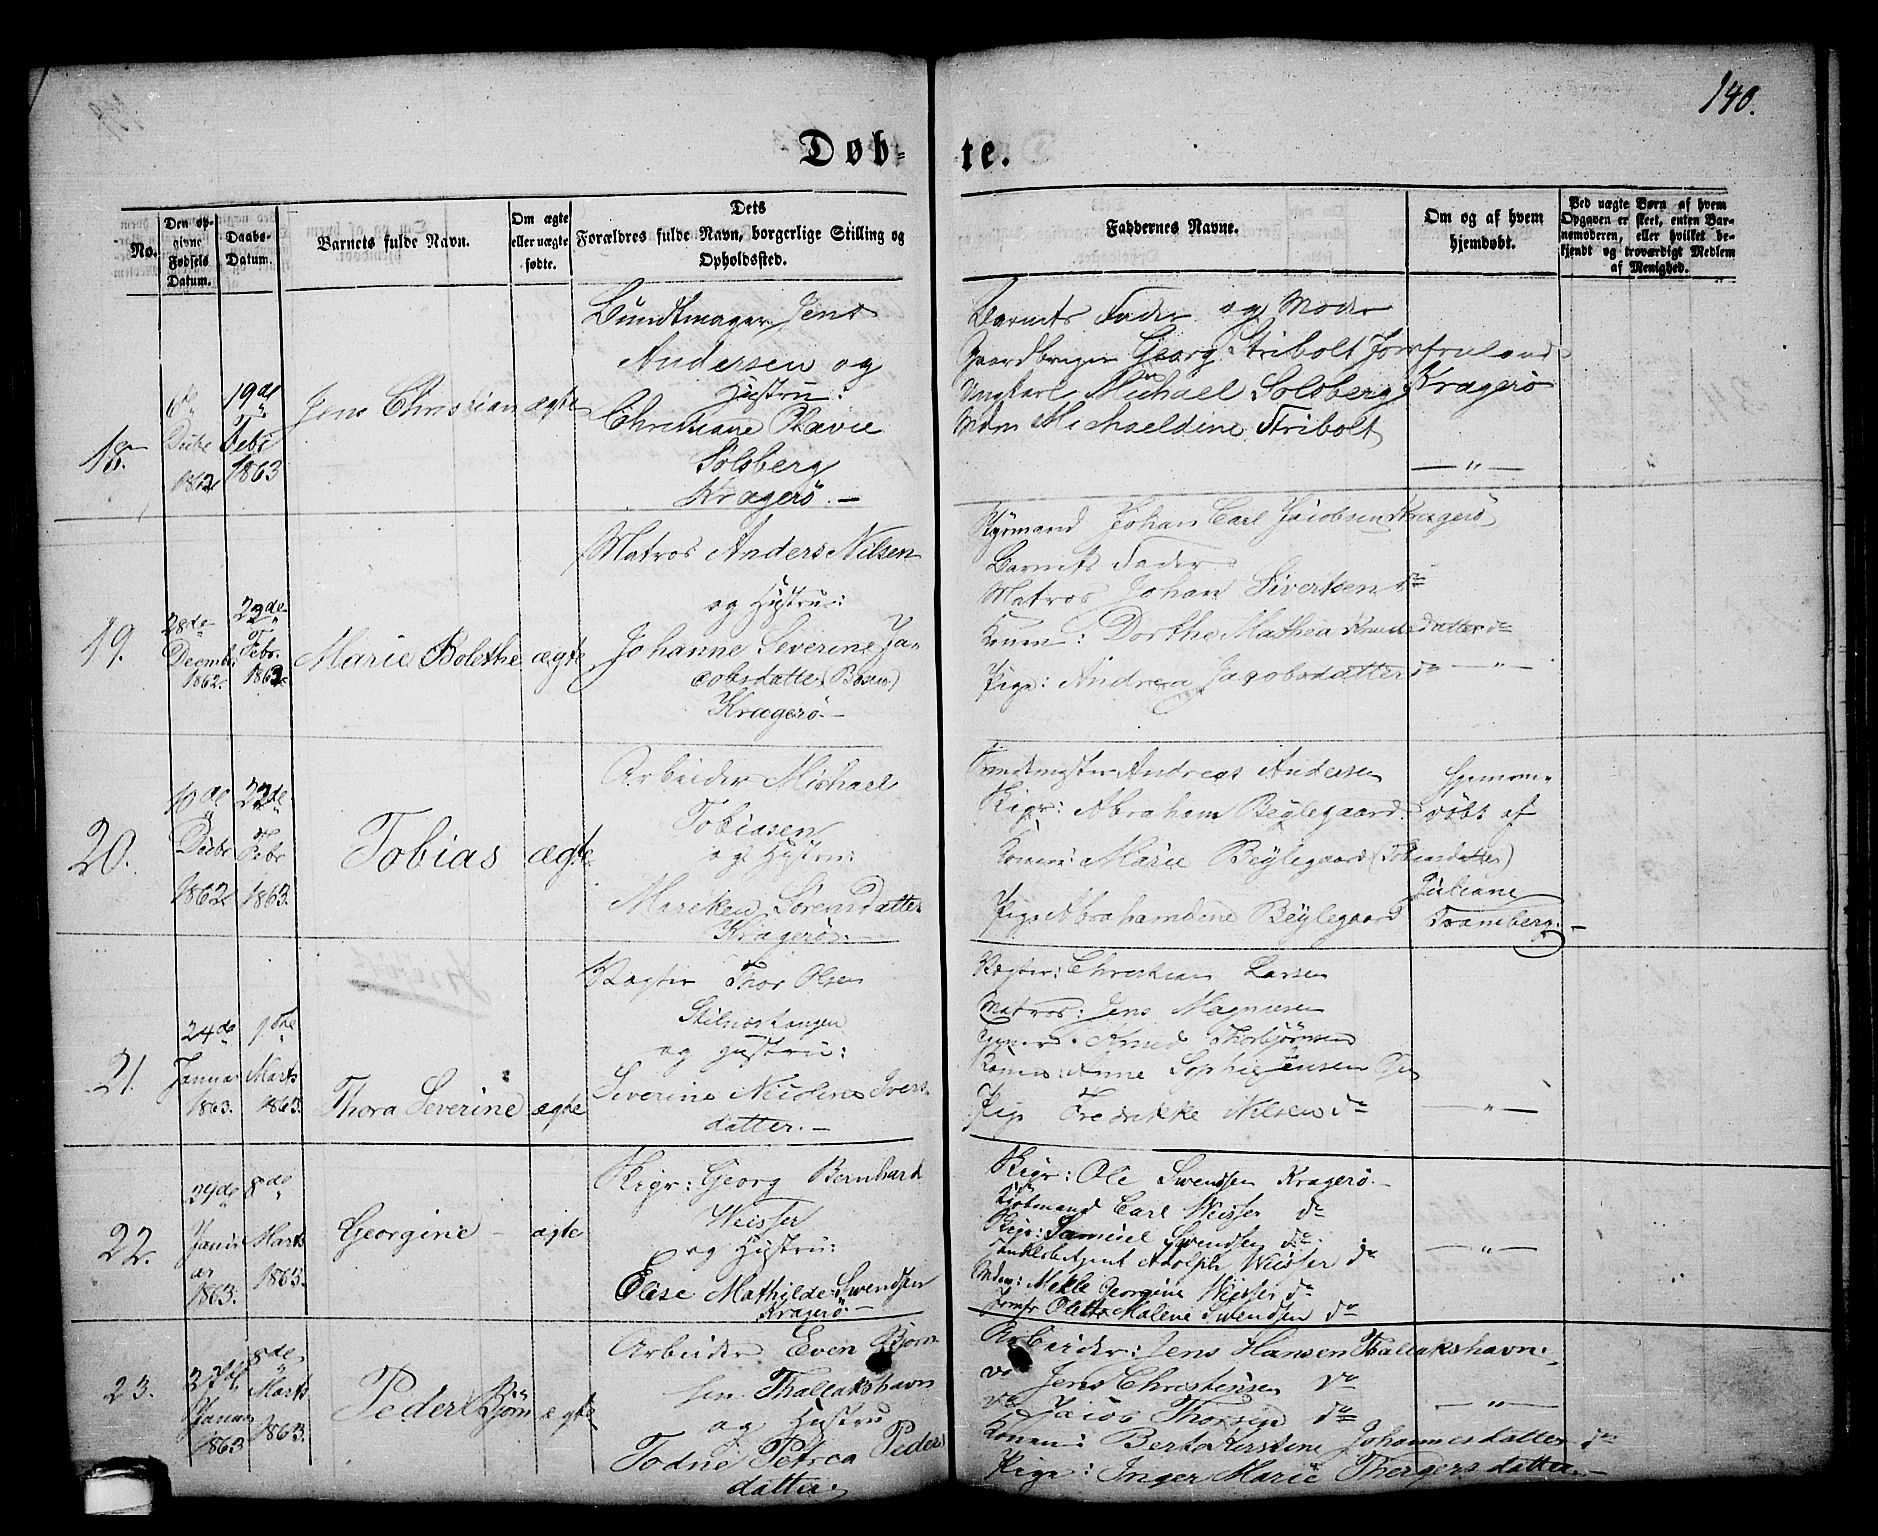 140.
Døb-
te.
No.
Den op-
givne
Fødsels
Datum.
Daabs-
Datum.
Barnets fulde Navn.
Om ægte
eller uægte
fødte.
Dets
Forældres fulde Navn, borgerlige Stilling og
Opholdssted.
Faddernes Navne.
Om og af hvem
hjemdøbt.
Ved uægte Børn af hvem
Opgaven er skeet, enten Bar-
nemoderen, eller hvilket be-
kjendt og troværdigt Medlem
af Menighed.
18.
6te
Decbr
1862
19de
Febr
1863
Jens Christian
ægte
Bundtmager Jens
Andersen og
Hustru:
Christiane
Solsberg
Kragerö. —
Barnets Fader og Moder
Gaardbruger Georg Stribolt Jomfruland
Ungkarl Michael Solsberg Kragerö
Mdm Michaeldine Stribolt
— " —
19.
28de
Decmbr
1862.
22de
Febr.
1863
Marie Bolethe
ægte
Matros Anders Nilsen
og Hustru:
Johanne Severine Ja-
cobsdatter (Bosen)
Kragerö. —
Styrmand Johan Carl Jacobsen Kragerö
Barnets Fader
Matros Johan Sivertsen do
Konen: Dorthe Mathea Knudsdatter do
Pige: Andrea Jacobsdatter do
— " —
20.
10de
Decbr
1862
22de
Febr
1863.
Tobias
ægte
Arbeider Michael
Tobiasen
og Hustru:
Mareken Sörensdatter
Kragerö. —
Andreas Andersen
Skipr: Abraham Beylegaard
Konen: Marie Beylegaard (Tobiasdatter)
Pige Abrahamdine Beylegaard
Hjemme-
döbt af
Juliane
Tramberg. —
21.
24de
Januar
1863.
1ste
Marts
1863.
Thora Severine
ægte
Rogter Thor Olsen
Stilnestangen
og Hustru:
Severine Nicoline Ivers-
datter. —
Rogter: Christian Larsen
Matros: Jens Magnusen
Knud Thorbjörnsen
Konen: Anne Sophie Jensen
Pige Fredrikke Nilsen do
— " —
22.
24de
Janu-
ar
1863.
8de
Marts
1863.
Georgine
ægte
Skipr: Georg Bernhard
Weisser
og Hustru:
Elise Mathilde Swendsen
Kragerö. —
Skipr: Ole Swendsen Kragerö. —
Kjöbmand Carl Weisser do
Skipr: Samuel Swendsen do
Adolph Weisser do
Mdm: Mekle Georgine Weisser do
Jomfr Olette Malene Swendsen do
— " —
23.
27de
Januar
1863
8de
Marts
1863.
Peder Björn
ægte
Arbeider Even Björn-
sen Thallakshavn
og Hustru
Todne Petrea Peders-
datter.
Arbeider: Jens Hansen Thallakshavn
do Jens Christensen do
do Jacob do
Konen: Berte Kirstine Johannesdatter do
Pige: Inger Marie Thergersdatter. —
— " —